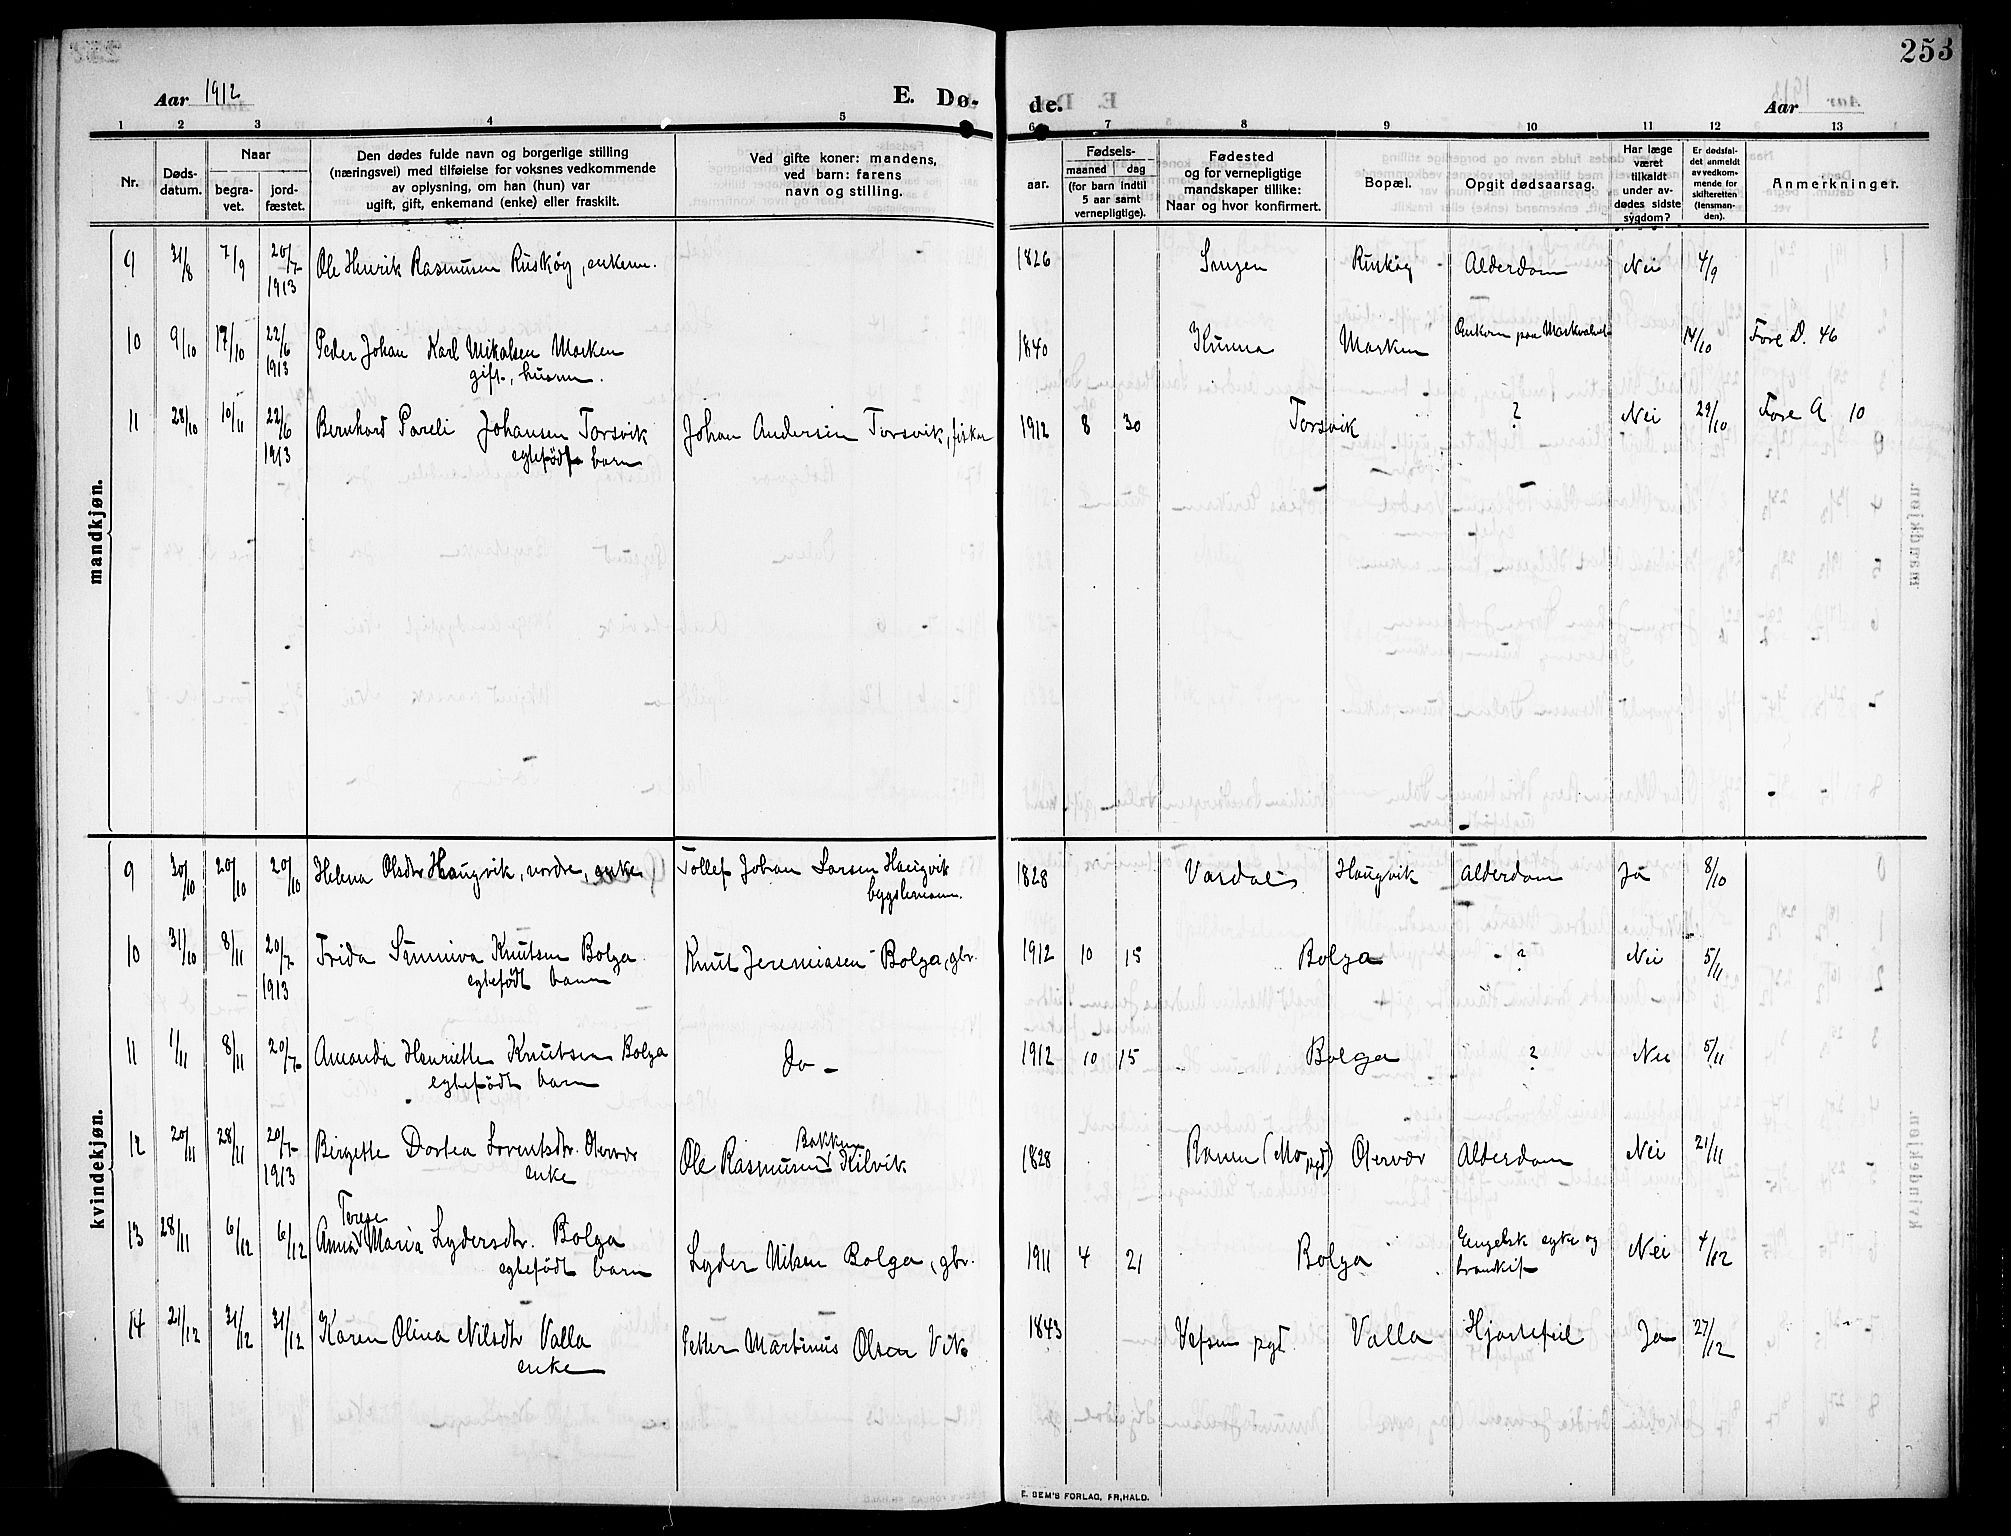 253
Aar 1912
E. Dø-
de.
Aar
1 2 3 4 5 6 7 8 9 10 11 12 13
Nr.
Døds-
datum.
Naar
begra-
vet.
jord-
fæstet.
Den dødes fulde navn og borgerlige stilling
(næringsvei) med tilføielse for voksnes vedkommende
av oplysning, om han (hun) var
ugift, gift, enkemand (enke) eller fraskilt.
Ved gifte koner: mandens,
ved barn: farens
navn og stilling.
Fødsels-
aar.
maaned dag
(for barn indtil
5 aar samt
vernepligtige).
Fødested
og for vernepligtige
mandskaper tillike:
Naar og hvor konfirmert.
Bopæl.
Opgit dødsaarsag.
Har læge
været
tilkaldt
under av-
dødes sidste
sygdom?
Er dødsfal-
det anmeldt
av vedkom-
mende for
skifteretten
(lensman-
den).
Anmerkninger.
mandkjøn.
9 31/8 7/9 20/7 1913 Ole Henrik Rasmusen Ruskøg, enkem. 1826 Ruskøg Alderdom Nei 4/9
10 9/10 17/10 22/6 1913 Peder Johan Karl Mikalsen Marken 1840 Kunna Marken 14/10 Fore D. 46
gift, husm.
11 28/10 10/11 22/6 1913 Bernhard Pareli Johansen Torsvik Johan Andersen Torsvik, fisker 1912 8 30 Torsvik ? Nei 29/10 Fore A 10
egtefødt barn
kvindekjøn.
9 30/10 20/10 20/10 Helena Olsdtr Haugvik, nordre, enke Tollef Johan Larsen Haugvik 1828 Vardal Haugvik Alderdom Ja 8/10
bygslemann.
10 31/10 8/11 20/7 1913 Frida Sunniva Knutsen Bolga Knut Jeremiasen Bolga, gbr. 1912 10 15 Bolga ? Nei 5/11
egtefødt barn
11 1/11 8/11 20/7 Amanda Henriette Knutsen Bolga Do - 1912 10 15 Bolga ? Nei 5/11
egtefødt barn
12 20/11 28/11 20/7 1913 Birgette Dortea Lorentsdtr. Otervær Ole Rasmusen Bakken Kilvik 1828 Ranen (Mo pgd) Otervær Alderdom Nei 21/11
enke
13 28/11 6/12 6/12 Anna Terese Maria Lydersdtr. Bolga Lyder Nilsen Bolga, gbr. 1911 4 21 Bolga Engelsk syke og Nei 4/12
egtefødt barn
14 21/12 31/12 31/12 Karen Olina Nilsdtr Valla Petter Martinus Olsen Vik 1843 Vefsen pgd. Valla Hjertefeil Ja 27/12
enke
E. SEM'S FORLAG, FR.HALD.